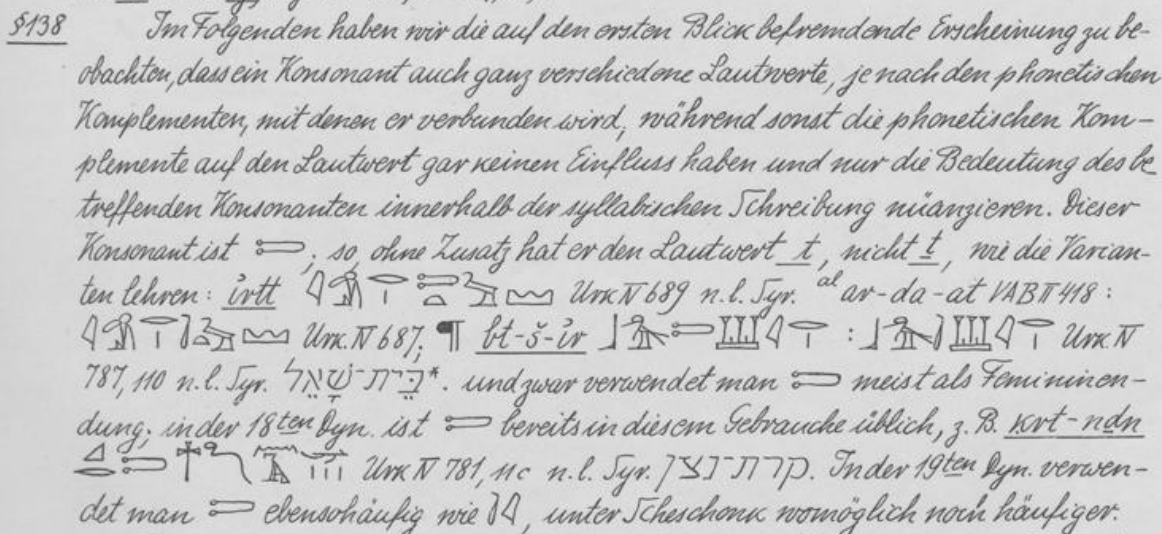 §138 Im Folgenden haben wir die auf den ersten Blick befremdende Erscheinung zu be-
obachten, dass ein Konsonant auch ganz verschiedene Lautwerte, je nach den phonetischen
Komplementen, mit denen er verbunden wird, während sonst die phonetischen Kom-
plemente auf den Lautwert gar keinen Einfluss haben und nur die Bedeutung des be
treffenden Konsonanten innerhalb der syllabischen Schreibung nüanzieren. Dieser
Konsonant ist ; so, ohne Zusatz hat er den Lautwert t, nicht ṯ, wie die Varian-
ten lehren: i҆rtt Urk IV 689 n.l. Syr. al ar-da-at VAB II 418 :
Urk. IV 687; ¶ bt-š-i҆r : Urk IV
787, 110 n.l. Syr. בֵּית־שָׁאֵל*. und zwar verwendet man meist als Femininen-
dung; in der 18ten Dyn. ist bereits in diesem Gebrauche üblich, z. B. krt-ndn
Urk IV 781, 11c n.l. Syr. קרת־נצן. In der 19ten Dyn. verwen-
det man ebensohäufig wie , unter Scheschonk womöglich noch häufiger.